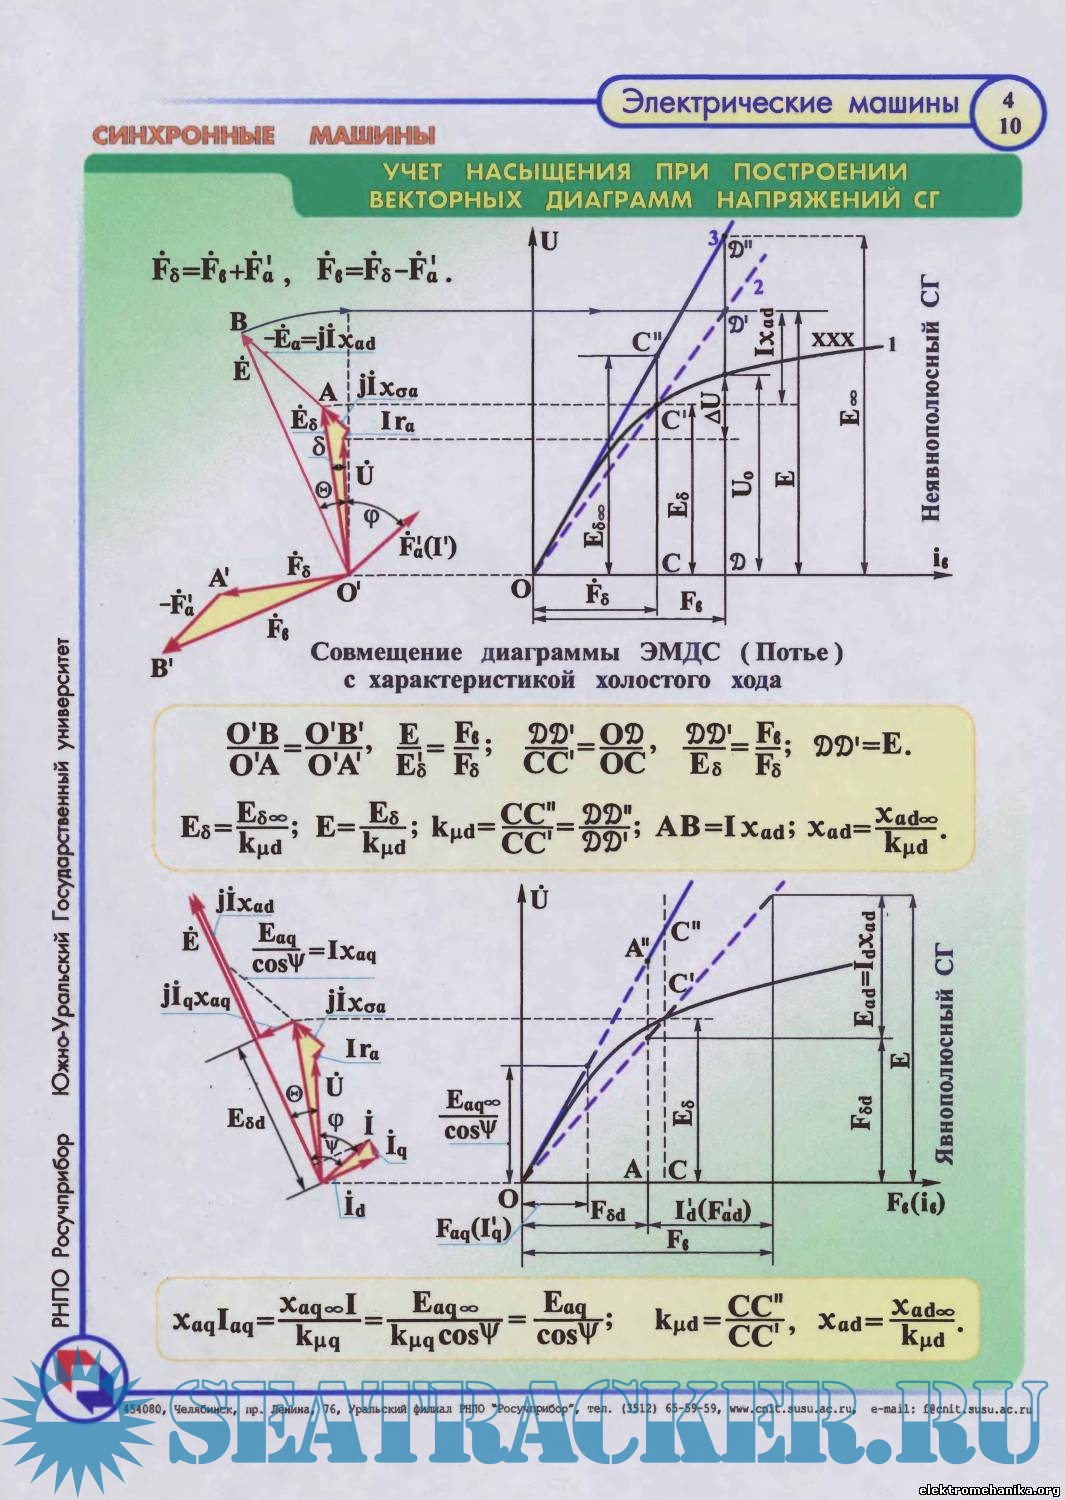 Электрические машины
4
10
СИНХРОННЫЕ МАШИНЫ
УЧЕТ НАСЫЩЕНИЯ ПРИ ПОСТРОЕНИИ
ВЕКТОРНЫХ ДИАГРАММ НАПРЯЖЕНИЙ СГ
Ḟδ=Ḟв+Ḟ'a, Ḟв=Ḟδ-Ḟ'a.
B
-Ėa=jİxad
Ė
A
jİxσa
Ėδ
Ira
δ
U̇
Θ
φ
Ḟ'a(I')
Ḟδ
A'
O'
-Ḟ'a
Ḟв
B'
U
3
Д''
2
Д'
Ixad
XXX
1
C''
C'
ΔU
E∞
Eδ∞
Eδ
U₀
E
C
Д
O
iв
Ḟδ
Fв
Неявнополюсный СГ
Совмещение диаграммы ЭМДС (Потье)
с характеристикой холостого хода
O'B/O'A=O'B'/O'A', E/Eδ=Fв/Fδ; ДД'/CC'=OД/OC, ДД'/Eδ=Fв/Fδ; ДД'=E.
Eδ=Eδ∞/kμd; E=Eδ/kμd; kμd=CC''/CC'=ДД''/ДД'; AB=Ixad; xad=xad∞/kμd.
jİxad
Ė
Eaq/cosΨ=Ixaq
jİqxaq
jİxσa
Ira
Θ
U̇
Eδd
φ
İ
Ψ
İq
İd
U̇
C''
A''
C'
Ead=Idxad
E
Eaq∞/cosΨ
Eδ
Fδd
A
C
O
Fв(iв)
Faq(I'q)
Fδd
I'd(F'ad)
Fв
Явнополюсный СГ
xaqIaq=xaq∞I/kμq=Eaq∞/kμqcosΨ=Eaq/cosΨ; kμd=CC''/CC', xad=xad∞/kμd.
РНПО Росучприбор Южно-Уральский Государственный университет
454080, Челябинск, пр. Ленина, 76, Уральский филиал РНПО "Росучприбор", тел. (3512) 65-59-59, www.cnit.susu.ac.ru, e-mail: f@cnit.susu.ac.ru
SEATRACKER.RU
elektromehanika.org